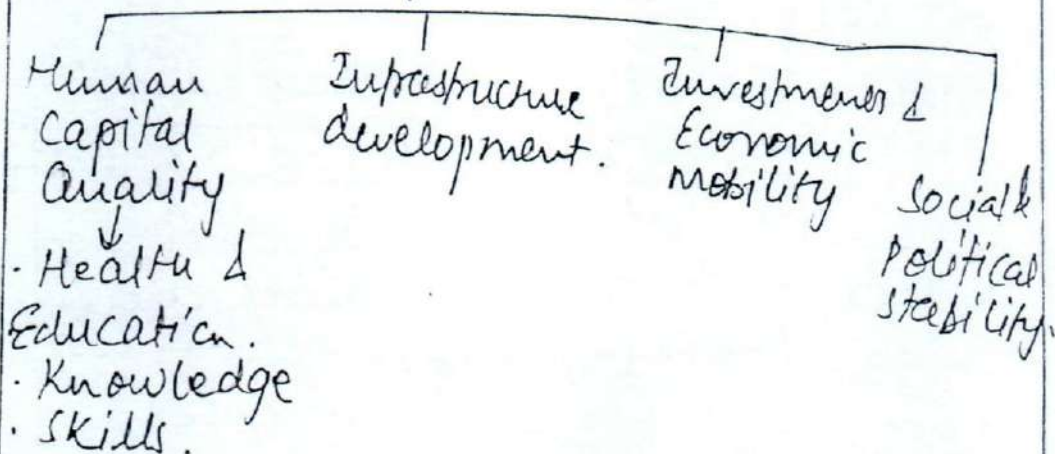 Human
Capital
Quality
· Health &
Education.
· Knowledge
· Skills.
Infrastructure
development.
Investments &
Economic
mobility
Social &
Political
stability.